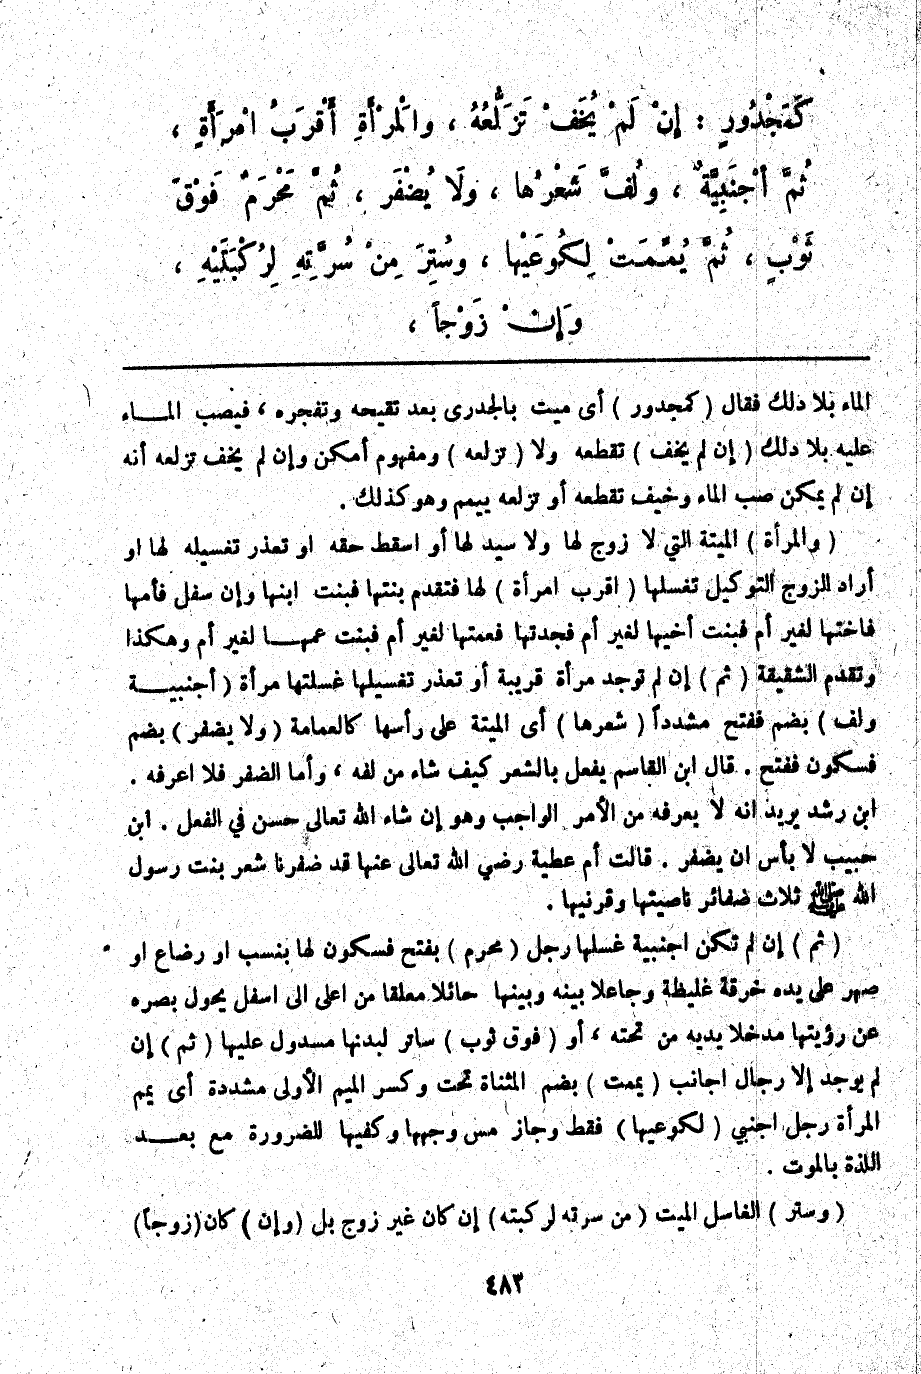 كَمَجْدُورٍ : إِنْ لَمْ يُخَفْ تَزَلُّعُهُ ، والْمَرْأَةِ أَقْرَبُ امْرِأَةٍ ،
ثُمَّ أَجْنَبِيَّةٌ ، ولُفَّ شَعْرُها ، ولَا يُضْفَر ، ثُمَّ مَحْرَمٌ فَوْقَ
ثَوْبٍ ، ثُمَّ يُمِّمَتْ لِكُوعَيْها ، وسُتِرَ مِنْ سُرَّتِهِ لِرُكْبَتَيْهِ ،
وَإِنْ زَوْجاً ،
الماء بلا دلك فقال ( كمجدور ) أى ميت بالجدرى بعد تقيحه وتفجره ، فيصب الماء
عليه بلا دلك ( إن لم يخف ) تقطعه ولا ( تزلعه ) ومفهوم أمكن وإن لم يخف تزلعه أنه
إن لم يمكن صب الماء وخيف تقطعه أو تزلعه ييمم وهو كذلك .
( والمرأة ) الميتة التي لا زوج لها ولا سيد لها أو اسقط حقه او تعذر تغسيله لها او
أراد الزوج التوكيل تغسلها ( اقرب امرأة ) لها فتقدم بنتها فبنت ابنها وإن سفل فأمها
فاختها لغير أم فبنت أخيها لغير أم فجدتها فعمتها لغير أم فبنت عمها لغير أم وهكذا
وتقدم الشقيقة ( ثم ) إن لم توجد مرأة قريبة أو تعذر تغسيلها غسلتها مرأة ( أجنبية
ولف ) بضم ففتح مشدداً ( شعرها ) أى الميتة على رأسها كالعمامة ( ولا يضفر ) بضم
فسكون ففتح . قال ابن القاسم يفعل بالشعر كيف شاء من لفه ، وأما الضفر فلا اعرفه .
ابن رشد يريد انه لا يعرفه من الأمر الواجب وهو إن شاء الله تعالى حسن في الفعل . ابن
حبيب لا بأس ان يضفر . قالت أم عطية رضي الله تعالى عنها قد ضفرنا شعر بنت رسول
الله ﷺ ثلاث ضفائر ناصيتها وقرنيها .
( ثم ) إن لم تكن اجنبية غسلها رجل ( محرم ) بفتح فسكون لها بنسب او رضاع او
صهر على يده خرقة غليظة وجاعلا بينه وبينها حائلا معلقا من اعلى الى اسفل يحول بصره
عن رؤيتها مدخلا يديه من تحته ، أو ( فوق ثوب ) ساتر لبدنها مسدول عليها ( ثم ) إن
لم يوجد إلا رجال اجانب ( يممت ) بضم المثناة تحت وكسر الميم الأولى مشددة أى يمم
المرأة رجل اجنبي ( لكوعيها ) فقط وجاز مس وجهها وكفيها للضرورة مع بعد
اللذة بالموت .
( وستر ) الغاسل الميت ( من سرته لركبته ) إن كان غير زوج بل ( وإن ) كان ( زوجاً )
٤٨٣